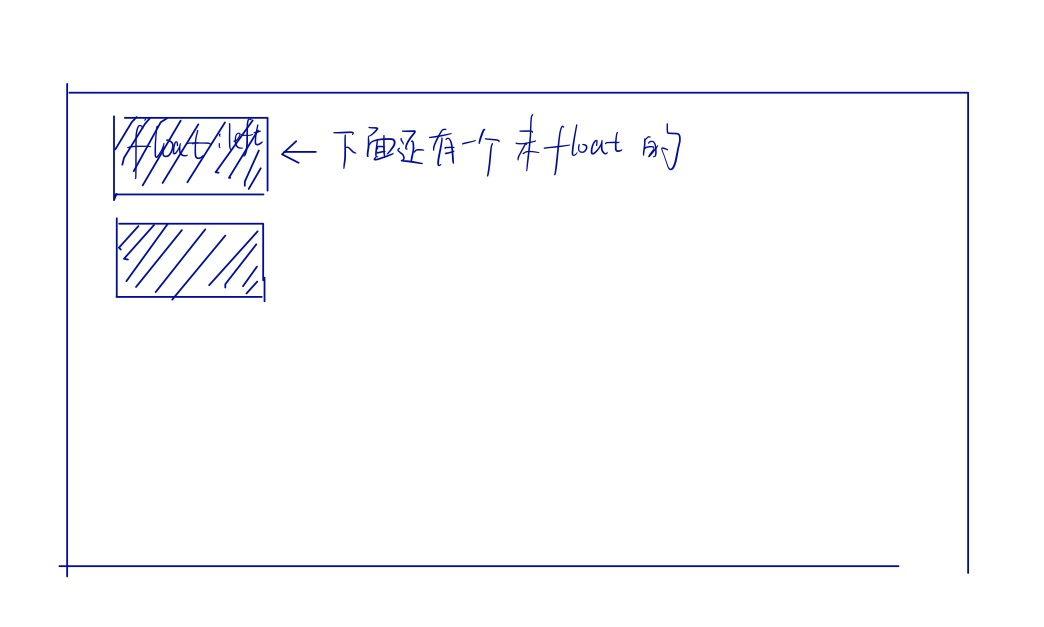 float:left ← 下面还有一个未float的